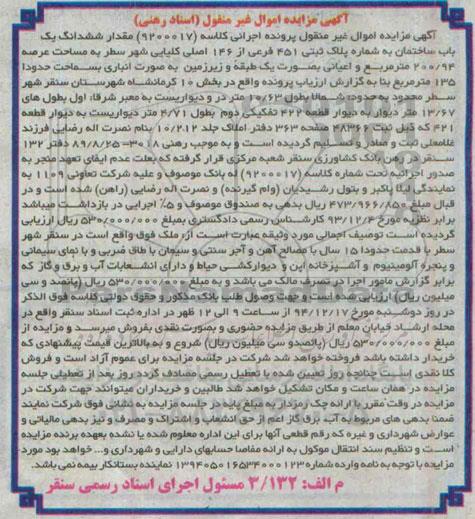 آگهی مزایده اموال غیر منقول (اسناد رهنی)
آگهی مزایده اموال غیر منقول پرونده اجرائی کلاسه (۹۲۰۰۰۱۷) مقدار ششدانگ یک
باب ساختمان به شماره پلاک ثبتی ۴۵۱ فرعی از ۱۴۶ اصلی کلیایی شهر سطر به مساحت عرصه
۲۰۰/۹۴ مترمربع و اعیانی بصورت یک طبقه و زیرزمین به صورت انباری بمساحت حدودا
۱۳۵ مترمربع بنا به گزارش ارزیاب پرونده واقع در بخش ۱۰ کرمانشاه شهرستان سنقر شهر
سطر محدود به حدود: شمالا بطول ۱۰/۶۳ متر در و دیواریست به معبر شرقا: اول بطول های
۱۳/۶۷ متر دیوار به دیوار قطعه ۴۲۲ تفکیکی دوم بطول ۴/۷۱ متر دیواریست به دیوار قطعه
۴۲۱ که ذیل ثبت ۴۸۳۶۶ صفحه ۳۶۳ دفتر املاک جلد ۱۰/۲۱۲ بنام نصرت اله رضایی فرزند
غلامعلی ثبت و صادر و تسلیم گردیده است و به موجب رهنی ۳۰۰۸-۸۹/۸/۲۵ دفتر ۱۳۲
سنقر در رهن بانک کشاورزی سنقر شعبه مرکزی قرار گرفته که بعلت عدم ایفای تعهد منجر به
صدور اجرائیه تحت شماره کلاسه (۹۲۰۰۰۱۷) له بانک موصوف و علیه شرکت تعاونی ۱۱۰۹ به
نمایندگی لیلا پاکبر و بتول رشیدیان (وام گیرنده) و نصرت اله رضایی (راهن) شده است و در
قبال مبلغ ۴۷۳/۹۶۶/۸۵۰ ریال بدهی به صندوق موصوف و ۵٪ اجرایی در بازداشت میباشد
برابر نظریه مورخ ۹۳/۱۲/۴ کارشناس رسمی دادگستری بمبلغ ۵۳۰/۰۰۰/۰۰۰ ریال ارزیابی
گردیده است توصیف اجمالی مورد وثیقه عبارت است از: ملک فوق واقع است در سنقر شهر
سطر با قدمت حدودا ۱۵ سال با مصالح آهن و آجر سنتی و سیمان با طاق ضربی و با نمای سیمانی
و پنجره آلومینیوم و آشپزخانه اپن و دیوارکشی حیاط و دارای انشعابات آب و برق و گاز که
برابر گزارش مامور اجرا در تصرف مالک می باشد و به مبلغ ۵۳۰/۰۰۰/۰۰۰ ریال (پانصد و سی
میلیون ریال) ارزیابی شده است و جهت وصول طلب بانک مذکور و حقوق دولتی کلاسه فوق الذکر
در روز دوشنبه مورخ ۹۴/۱۲/۱۷ از ساعت ۹ الی ۱۲ ظهر در اداره ثبت اسناد سنقر واقع در
محله ارشاد خیابان معلم از طریق مزایده حضوری و بصورت نقدی بفروش میرسد و مزایده از
مبلغ ۵۳۰/۰۰۰/۰۰۰ ریال (پانصدو سی میلیون ریال) شروع و به بالاترین قیمت پیشنهادی که
خریدار داشته باشد فروخته خواهد شد شرکت در جلسه مزایده برای عموم آزاد است و فروش
کلا نقدی است چنانچه روز تعیین شده با تعطیل رسمی مصادف گردد روز بعد از تعطیلی جلسه
مزایده در همان ساعت و مکان تشکیل خواهد شد طالبین و خریداران میتوانند جهت شرکت در
مزایده در وقت مقرر با ارائه چک رمزدار به مبلغ پایه در جلسه مزایده به نشانی فوق شرکت نمایند
ضمنا بدهی های مربوط به آب، برق گاز اعم از حق انشعاب و اشتراک و مصرف و نیز بدهی مالیاتی و
عوارض شهرداری و غیره که رقم قطعی آنها برای این اداره معلوم شده یا نشده بعهده برنده مزایده
است و تنظیم سند انتقال موکول به ارائه مفاصا حسابهای دارایی و شهرداری و... خواهد بود مورد
مزایده با توجه به نامه وارده شماره ۱۳۹۴۰۵۰۱۶۵۳۴۰۰۰۱۲۳ نماینده بستانکار بیمه نمی باشد.
م الف: ۳/۱۳۲ مسئول اجرای اسناد رسمی سنقر